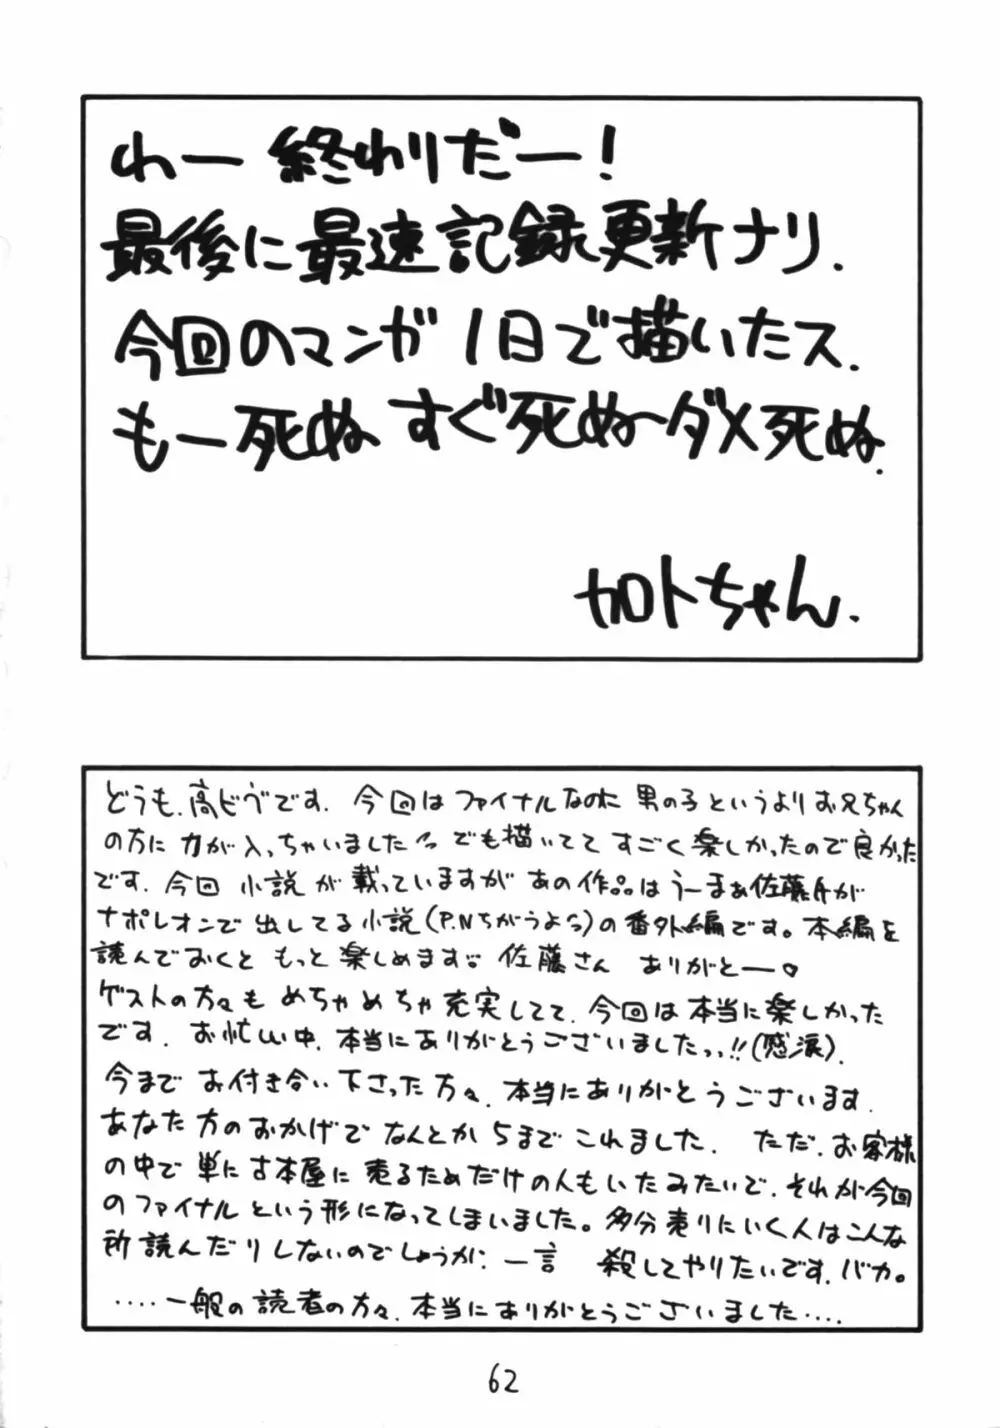 わー 終わりだー!
最後に最速記録更新ナリ.
今回のマンガ 1日で描いたス.
もー死ぬ すぐ死ぬ〜ダメ死ぬ.
カロトちゃん.
どうも、高ビヴです. 今回はファイナルなのに 男の子というよりお兄ちゃん
の方に力が入っちゃいました でも描いてて すごく楽しかったので良かった
です. 今回 小説が載っていますが あの作品はうーまぁ佐藤氏が
ナポレオンで出してる小説(P.Nちがうよ)の番外編です。本編を
読んでおくと もっと楽しめます 佐藤さん ありがとー
ゲストの方々も めちゃめちゃ充実してて、今回は本当に楽しかった
です. お忙しい中、本当にありがとうございましたっ!!(感涙).
今まで お付き合い下さった方々、本当にありがとうございます.
あなた方のおかげで なんとか5まで これました. ただ、お客様
の中で 単に古本屋に売るためだけの人もいたみたいで、それが今回
のファイナルという形になってしまいました。多分売りにいく人はこんな
所読んだりしないのでしょうが、一言 殺してやりたいです、バカ。
‥‥一般の読者の方々、本当にありがとうございました‥‥
62